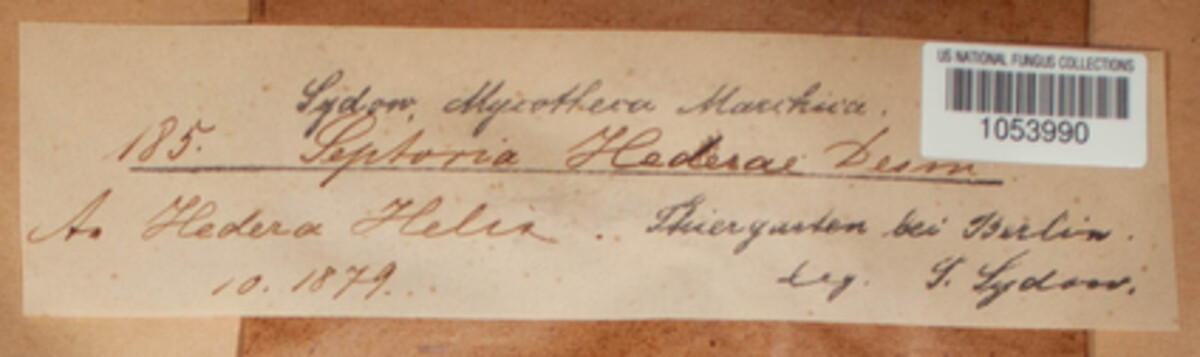 US NATIONAL FUNGUS COLLECTIONS
1053990
Sydow, Mycotheca Marchica.
185. Septoria Hederae Desm
An Hedera Helix. Thiergarten bei Berlin.
10. 1879. leg. P. Sydow.